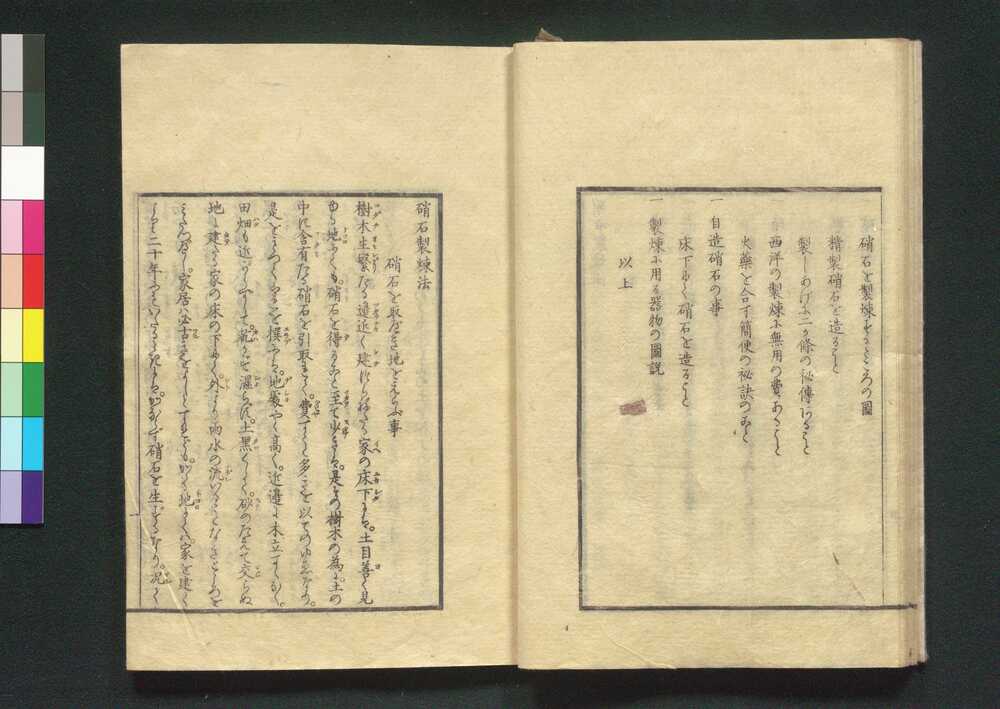 硝石を製煉するところの圖
精製硝石を造ること
製しあげに二ヶ條の秘傳あること
西洋の製煉に無用の費あること
火藥を合す簡便の秘訣のこと
一 自造硝石の事
床下にて硝石を造ること
一 製煉に用る器物の圖説
以上
硝石製煉法
硝石を取べき地をえらぶ事
樹木生繁たる邉近く建つらねたる家の床下は。土目善く見
ゆる地にても。硝石を得ること至て少きは。是その樹木の為に。土の
中に含有たる硝石を引取るゝ。費すこと多きを以てのゆゑなり。
是をよく〳〵こゝろを撰ふべし。地處やゝ高く。近邉に木立すくなく。
田畑も近からずして。 を濕らず。土黒くして。砂のたえて交らぬ
地に建たる家の床の下にて。外より雨水の流いることなきところを
家居は必古きをよしとすれども。 地にては家を建て
二十年 硝石を生ずるなり。況て